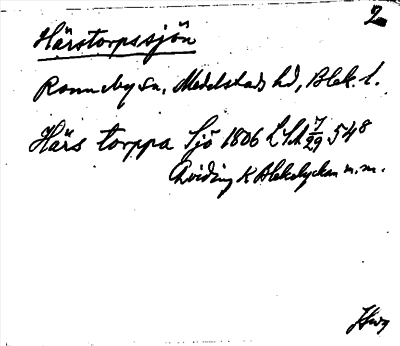 2
Härstorpssjön
Ronneby sn, Medelstads hd, Blek. l.
Härs torppa Sjö 1806 LSA 7/29 548
Avidning K Blekelyckan m.m.